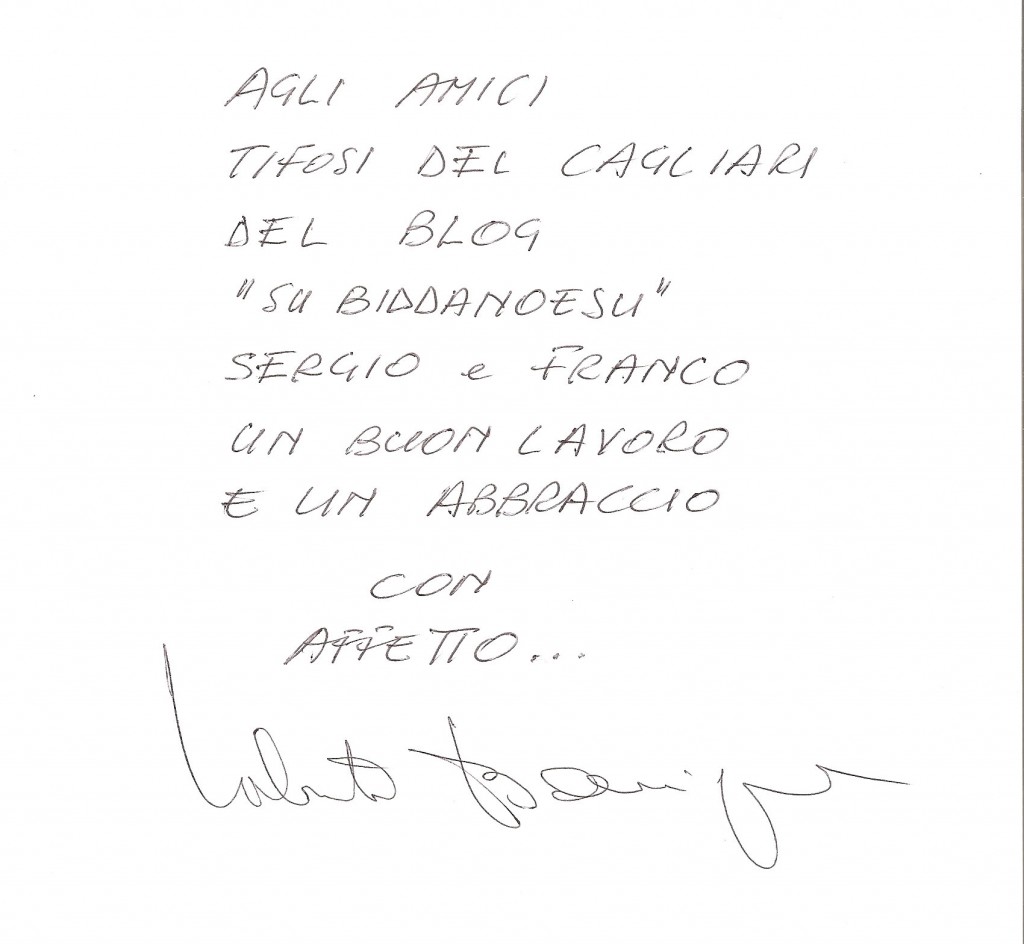 AGLI AMICI
TIFOSI DEL CAGLIARI
DEL BLOG
"SU BIDDANOESU"
SERGIO e FRANCO
UN BUON LAVORO
E UN ABBRACCIO
CON
AFFETTO...